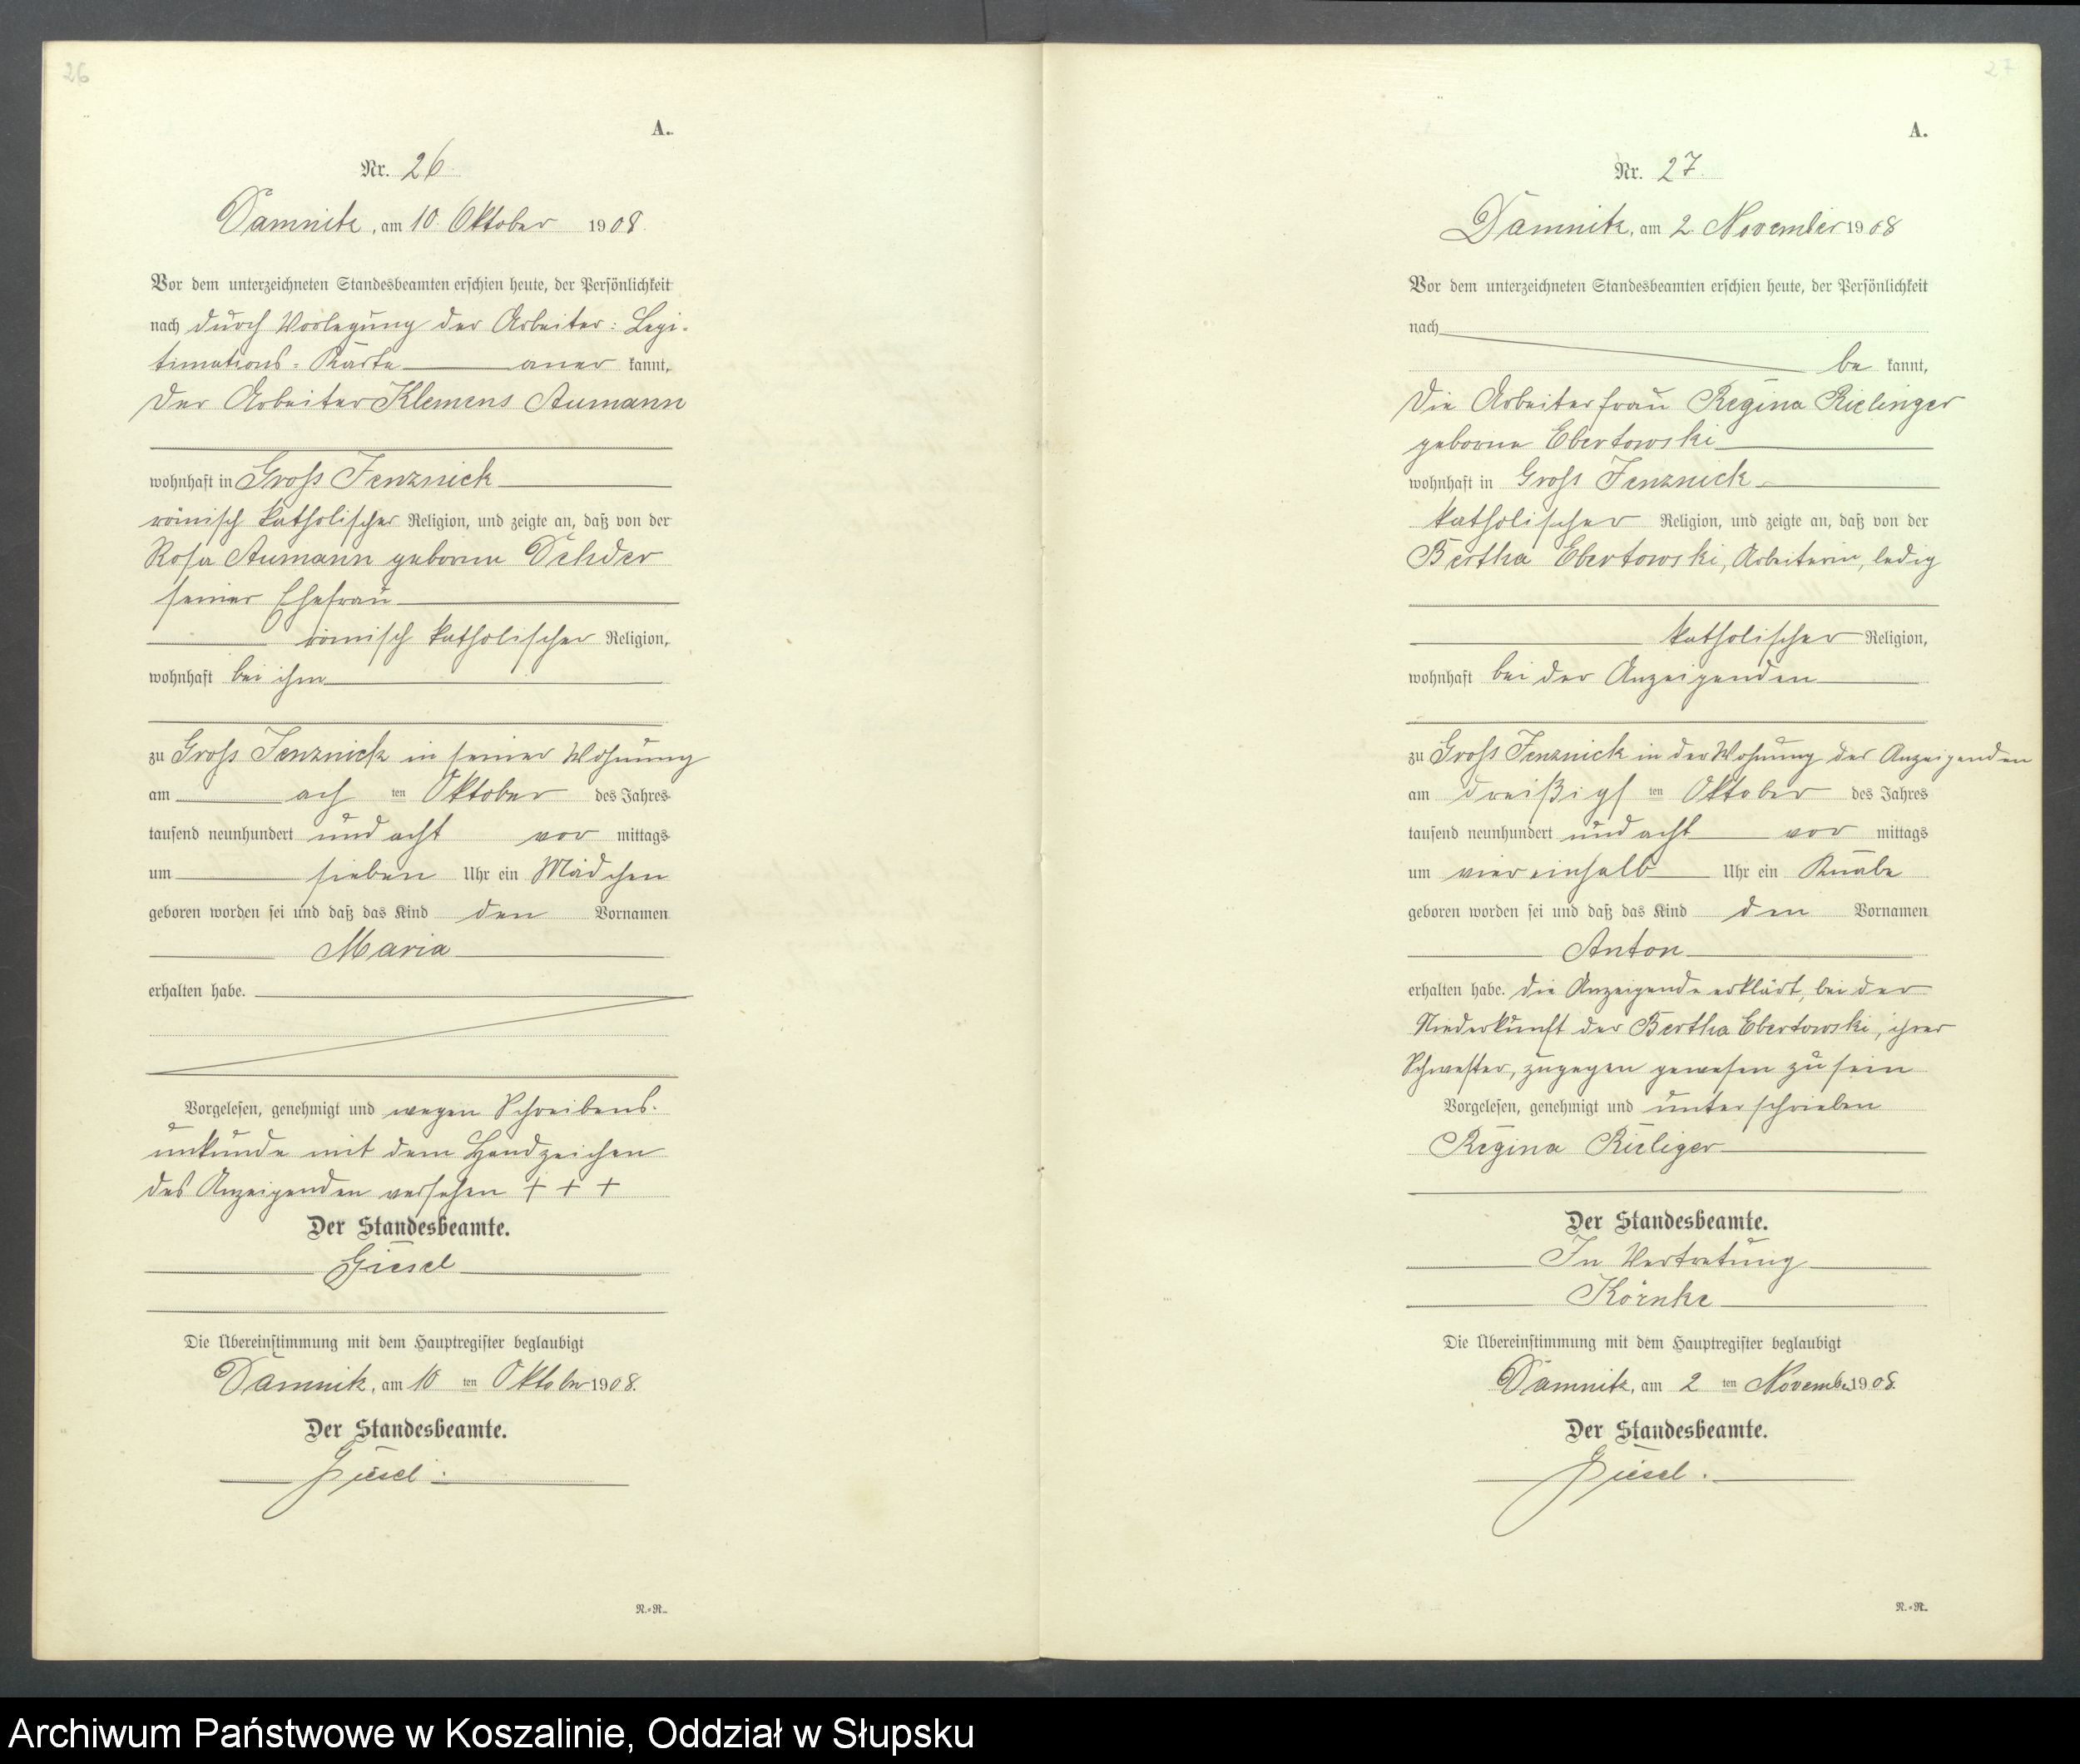 26
A.
Nr. 26.
Damnitz, am 10. Oktober 1908.
Vor dem unterzeichneten Standesbeamten erschien heute, der Persönlichkeit
nach durch Vorlegung der Arbeiter: Legi-
timations-Karte aner kannt,
der Arbeiter Klemens Aumann
wohnhaft in Gross Jenznick
römisch katholischer Religion, und zeigte an, daß von der
Rosa Aumann geborene
seiner Ehefrau
römisch katholischer Religion,
wohnhaft bei ihm
zu Gross Jenznick in seiner Wohnung
am ach ten Oktober des Jahres
tausend neunhundert und acht vor mittags
um sieben Uhr ein Mädchen
geboren worden sei und daß das Kind den Vornamen
Maria
erhalten habe.
Vorgelesen, genehmigt und wegen Schreibens-
unkunde mit dem Handzeichen
des Anzeigenden versehen + + +
Der Standesbeamte.
Giesel
Die Übereinstimmung mit dem Hauptregister beglaubigt
Damnitz, am 10 ten Oktober 1908.
Der Standesbeamte.
Giesel.
N.-R.
27
A.
Nr. 27.
Damnitz, am 2. November 1908
Vor dem unterzeichneten Standesbeamten erschien heute, der Persönlichkeit
nach
be kannt,
die Arbeiterfrau Regina Rielinger
geborene Ebertowski
wohnhaft in Gross Jenznick
katholischer Religion, und zeigte an, daß von der
Bertha Ebertowski, Arbeiterin, ledig
katholischer Religion,
wohnhaft bei der Anzeigenden
zu Gross Jenznick in der Wohnung der Anzeigenden
am dreißigs ten Oktober des Jahres
tausend neunhundert und acht vor mittags
um viereinhalb Uhr ein Knabe
geboren worden sei und daß das Kind den Vornamen
Anton
erhalten habe. Die Anzeigende erklärt, bei der
Niederkunft der Bertha Ebertowski, ihrer
Schwester, zugegen gewesen zu sein
Vorgelesen, genehmigt und unterschrieben
Regina Rieliger
Der Standesbeamte.
In Vertretung
Körnke
Die Übereinstimmung mit dem Hauptregister beglaubigt
Damnitz, am 2 ten November 1908.
Der Standesbeamte.
Giesel.
N.-R.
Archiwum Państwowe w Koszalinie, Oddział w Słupsku